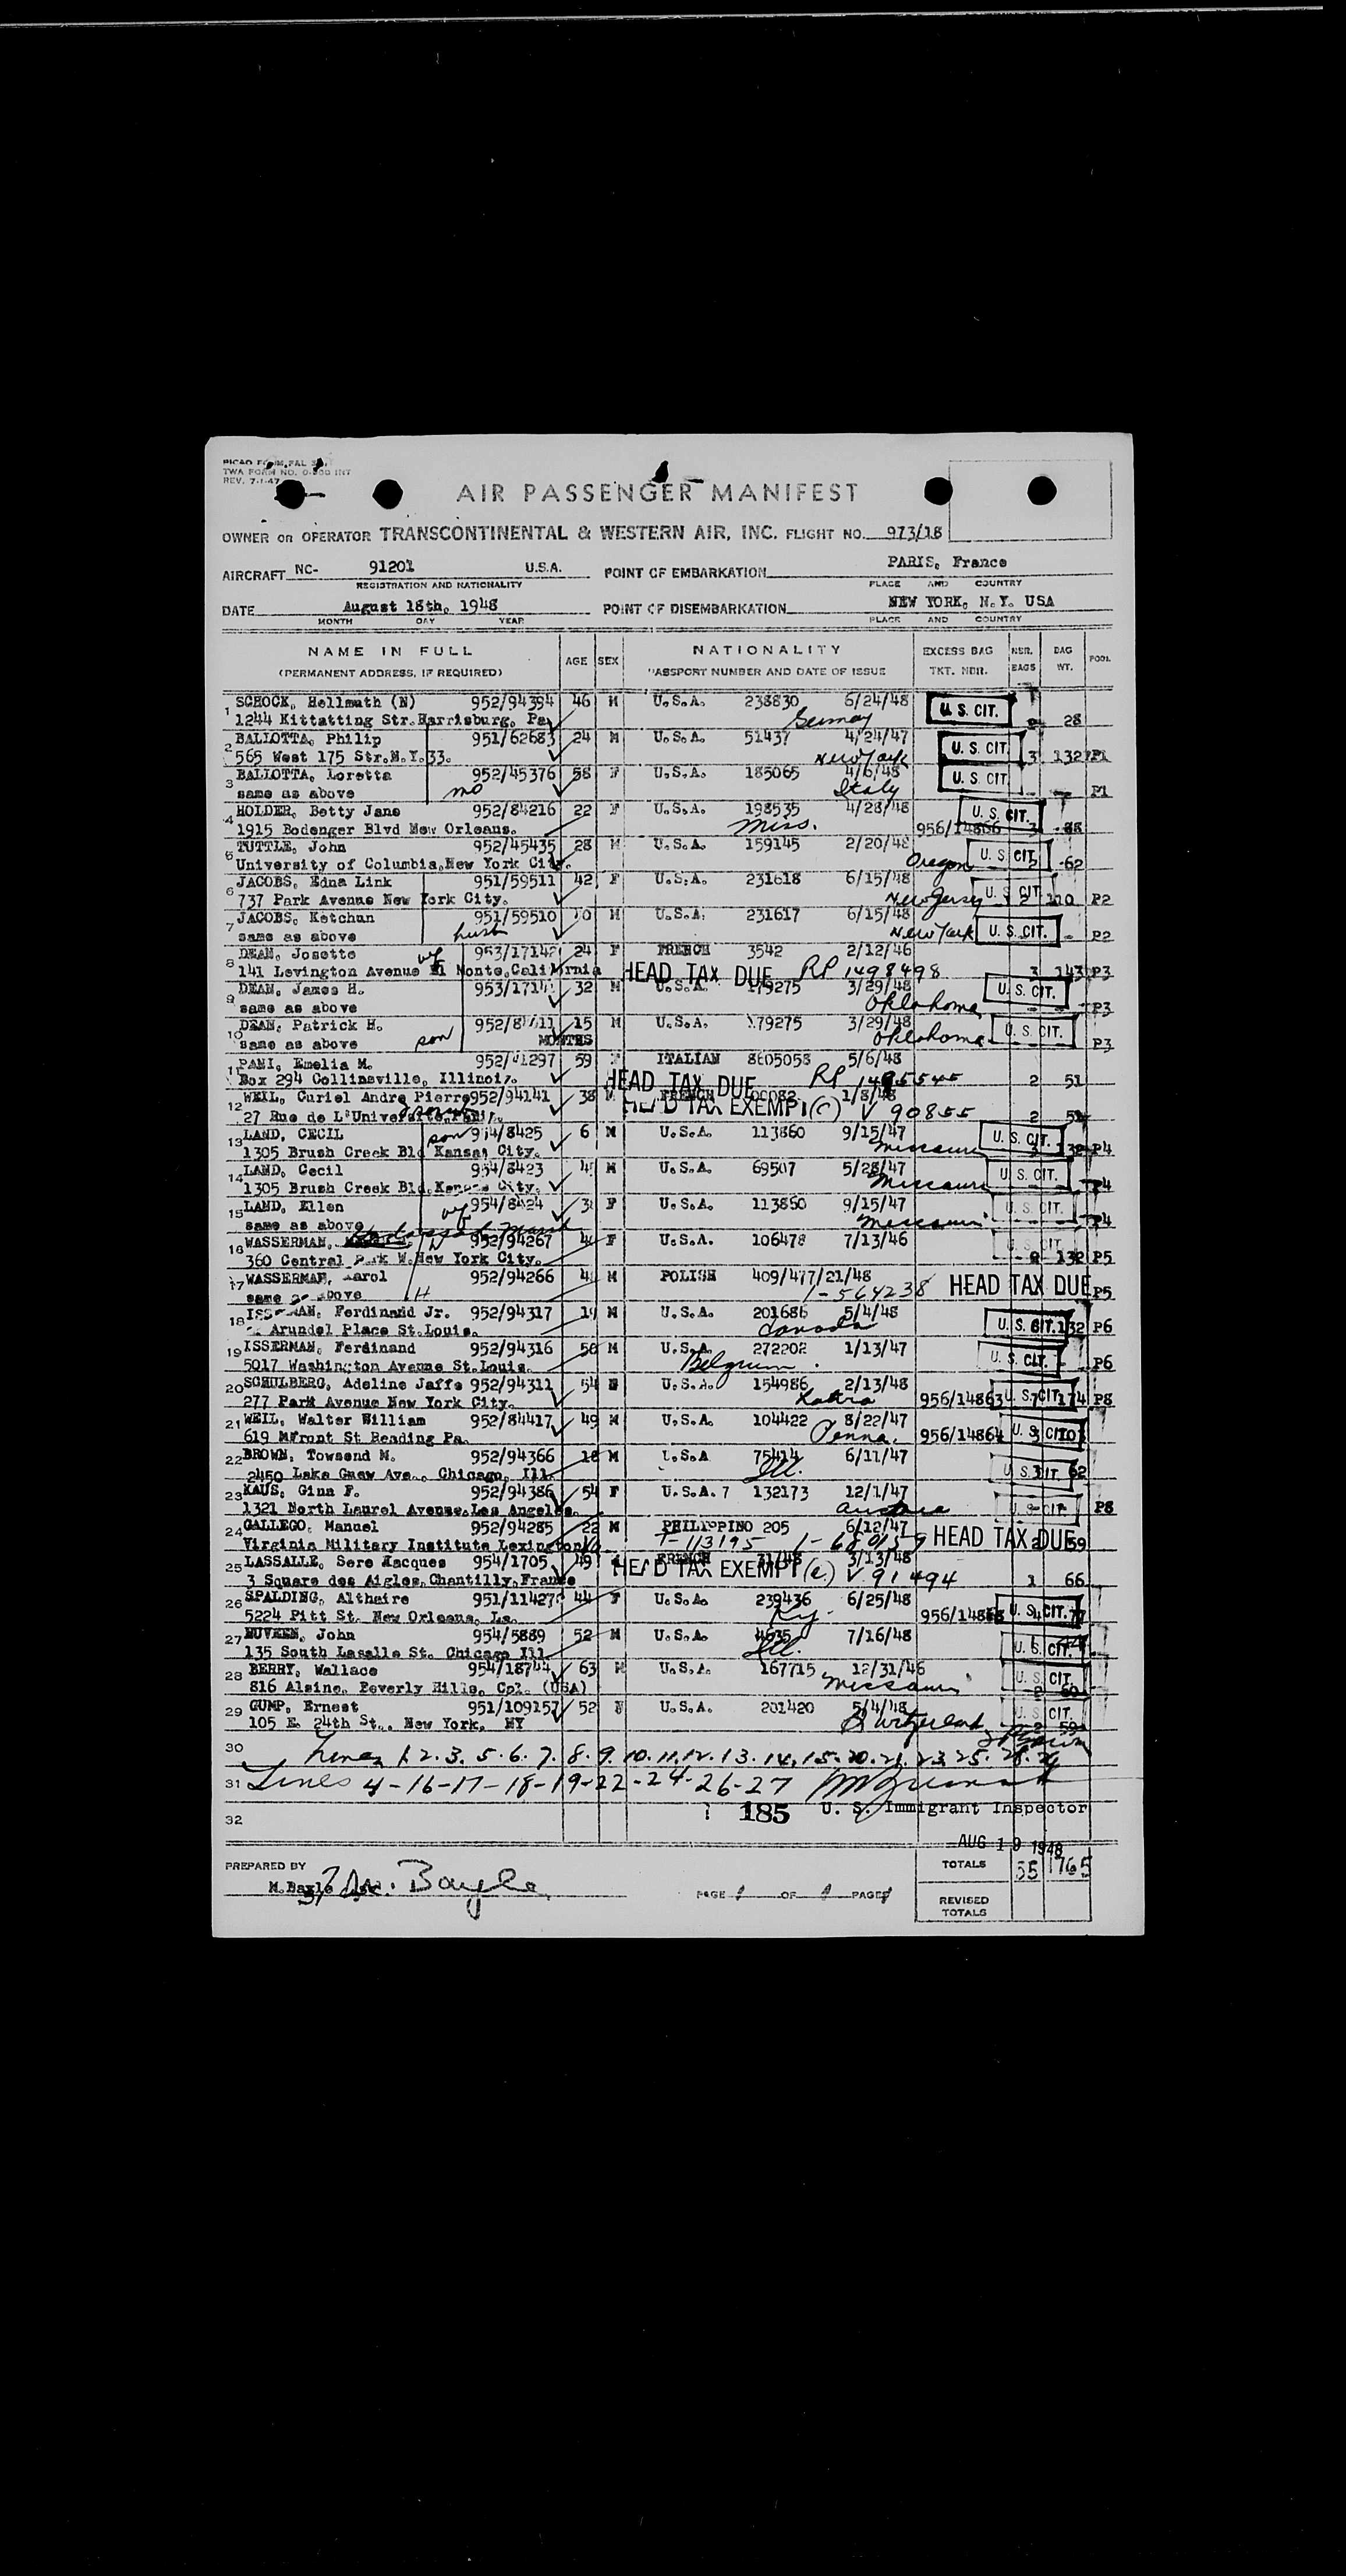 TWA FORM NO. INT
REV. 7-1-47
AIR PASSENGER MANIFEST
OWNER on OPERATOR TRANSCONTINENTAL & WESTERN AIR, INC. FLIGHT NO. 973/18
AIRCRAFT NC- 91201 U.S.A. POINT OF EMBARKATION PARIS, France
REGISTRATION AND NATIONALITY PLACE AND COUNTRY
DATE August 18th, 1948 POINT OF DISEMBARKATION NEW YORK, N.Y. USA
MONTH DAY YEAR PLACE AND COUNTRY
NAME IN FULL AGE SEX NATIONALITY EXCESS BAG NBR. BAG POOL
(PERMANENT ADDRESS, IF REQUIRED) PASSPORT NUMBER AND DATE OF ISSUE TKT. NBR. BAGS WT.
1 SCHOCK, Hellmuth (N) 952/94394 46 M U.S.A. 238830 6/24/48 U. S. CIT.
1244 Kittatting Str. Harrisburg, Pa. Germany 28
2 BALLOTTA, Philip 951/62683 24 M U.S.A. 51437 4/24/47 U. S. CIT.
565 West 175 Str.N.Y.33. New York 3 132 P1
3 BALLOTTA, Loretta 952/45376 58 F U.S.A. 185065 4/6/48 U. S. CIT.
same as above mo Italy P1
4 HOLDER, Betty Jane 952/84216 22 F U.S.A. 198535 4/28/48 U. S. CIT.
1915 Bodenger Blvd New Orleans. Miss. 956/14866 3 88
5 TUTTLE, John 952/45435 28 M U.S.A. 159145 2/20/48 U. S. CIT.
University of Columbia, New York City. Oregon 62
6 JACOBS, Edna Link 951/59511 42 F U.S.A. 231618 6/15/48 U. S. CIT.
737 Park Avenue New York City. New Jersey 2 110 P2
7 JACOBS, Ketchun 951/59510 M U.S.A. 231617 6/15/48
same as above husb New York U. S. CIT. P2
8 DEAN, Josette wf 953/17142 24 F FRENCH 3542 2/12/46
141 Levington Avenue El Monte, California HEAD TAX DUE RP 1498498 3 143 P3
9 DEAN, James H. 32 M U.S.A. 179275 3/29/48 U. S. CIT.
same as above Oklahoma P3
10 DEAN, Patrick H. 15 M U.S.A. 179275 3/29/48 U. S. CIT.
same as above son MONTHS Oklahoma P3
11 PANI, Emelia M. 59 F ITALIAN 8605058 5/6/48
Box 294 Collinsville, Illinois. HEAD TAX DUE RP 2 51
12 WEIL, Curiel Andre Pierre 952/94141 38 M FRENCH 1/8/48
27 Rue de L'Universite, Paris. HEAD TAX EXEMPT (c) V 90855 2
13 LAND, CECIL son 954/8425 6 M U.S.A. 113860 9/15/47 U. S. CIT.
1305 Brush Creek Bld Kansas City. Missouri P4
14 LAND, Cecil 954/8423 M U.S.A. 69507 5/28/47 U. S. CIT.
1305 Brush Creek Bld. Kansas City. Missouri P4
15 LAND, Ellen wf 954/8424 F U.S.A. 113860 9/15/47 U. S. CIT.
same as above Missouri P4
16 WASSERMAN, 952/94267 F U.S.A. 106478 7/13/46 U. S. CIT.
360 Central Park W. New York City. 132 P5
17 WASSERMAN, Karol 952/94266 M POLISH 409/477/21/48
same as above H 1-564238 HEAD TAX DUE P5
18 ISSERMAN, Ferdinand Jr. 952/94317 M U.S.A. 201686 5/4/48
Arundel Place St.Louis. Canada U. S. CIT. 132 P6
19 ISSERMAN, Ferdinand 952/94316 50 M U.S.A. 272202 1/13/47
5017 Washington Avenue St.Louis. Belgium U. S. CIT. P6
20 SCHULBERG, Adeline Jaffe 952/94311 54 F U.S.A. 154986 2/13/48
277 Park Avenue New York City. 956/14863 U. S. CIT. 174 P8
21 WEIL, Walter William 952/84417 49 M U.S.A. 104422 8/22/47
619 Mfront St Reading Pa. Penna. 956/14864 U. S. CIT.
22 BROWN, Towsend M. 952/94366 18 M U.S.A. 75414 6/11/47
2450 Lake Ave., Chicago, Ill. Ill. U. S. CIT. 62
23 KAUS, Gina F. 952/94386 54 F U.S.A. 7 132173 12/1/47
1321 North Laurel Avenue. Los Angeles. Austria U. S. CIT. P8
24 GALLEGO, Manuel 952/94285 22 M PHILIPPINO 205 6/12/47
Virginia Military Institute Lexington Va T-113195 HEAD TAX DUE 59
25 LASSALLE, Sere Jacques 954/1705 49 FRENCH 3/13/48
3 Square des Aigles, Chantilly, France HEAD TAX EXEMPT (c) V 91494 1 66
26 SPALDING, Altheire 44 F U.S.A. 239436 6/25/48
5224 Pitt St. New Orleans, La. Ky. U. S. CIT. 77
27 NUVEEN, John 954/5889 52 M U.S.A. 4635 7/16/48
135 South Lasalle St. Chicago Ill. Ill. U. S. CIT.
28 BERRY, Wallace 954/18744 63 M U.S.A. 167715 12/31/46 U. S. CIT.
816 Alsine, Beverly Hills, (USA) Missouri
29 GUMP, Ernest 951/109157 52 U.S.A. 201420 5/4/48 U. S. CIT.
105 E. 24th St., New York, NY Switzerland 2 59
30 Lines 1. 2. 3. 5. 6. 7. 8. 9. 10. 11. 12. 13. 14. 15. 20. 21. 23. 25. 28. 29
31 Lines 4-16-17-18-19-22-24-26-27
185 U. S. Immigrant Inspector
32
AUG 19 1948
PREPARED BY TOTALS 55 1765
M. Bayle
PAGE 1 OF 1 PAGES
REVISED
TOTALS